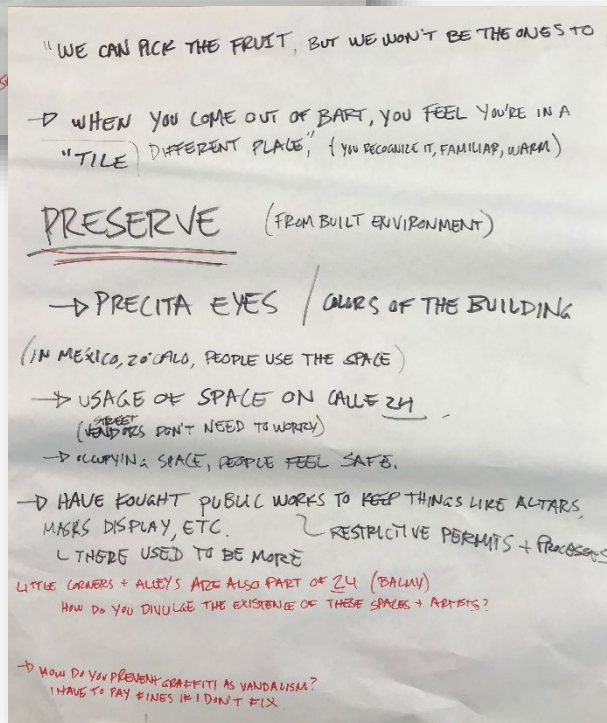 "WE CAN PICK THE FRUIT, BUT WE WON'T BE THE ONES TO
→ WHEN YOU COME OUT OF BART, YOU FEEL YOU'RE IN A
"TILE) DIFFERENT PLACE", (YOU RECOGNIZE IT, FAMILIAR, WARM)
PRESERVE (FROM BUILT ENVIRONMENT)
→ PRECITA EYES / COLORS OF THE BUILDING
(IN MÉXICO, ZÓCALO, PEOPLE USE THE SPACE)
→ USAGE OF SPACE ON CALLE 24
STREET
(VENDORS DON'T NEED TO WORRY)
→ OCCUPYING SPACE, PEOPLE FEEL SAFE.
→ HAVE FOUGHT PUBLIC WORKS TO KEEP THINGS LIKE ALTARS,
MASKS DISPLAY, ETC.
RESTRICTIVE PERMITS + PROCESSES
THERE USED TO BE MORE
LITTLE CORNERS + ALLEYS ARE ALSO PART OF 24 (BALMY)
HOW DO YOU DIVULGE THE EXISTENCE OF THESE SPACES + ARTISTS?
→ HOW DO YOU PREVENT GRAFFITI AS VANDALISM?
I HAVE TO PAY FINES IF I DON'T FIX